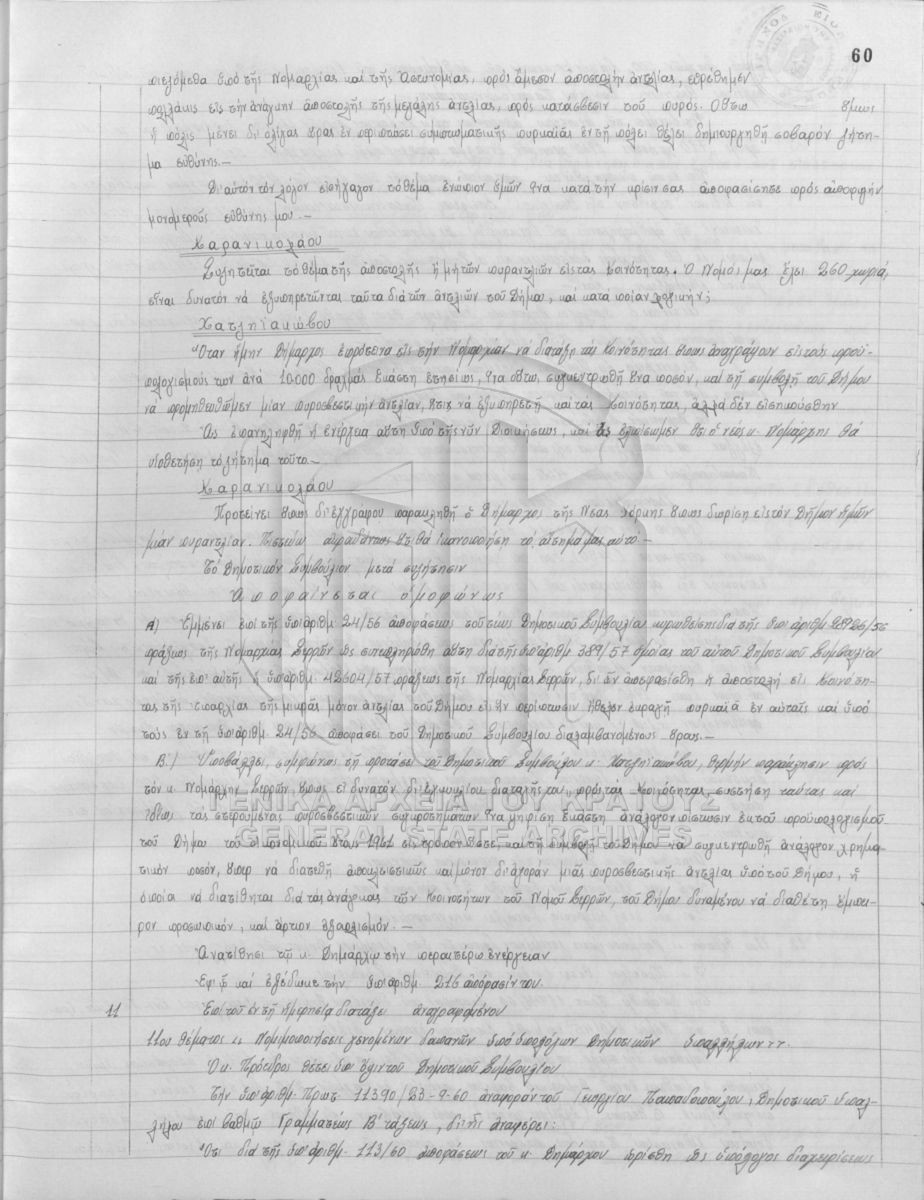 60
πιεζόμεθα ὑπό τῆς Νομαρχίας καί τῆς Ἀστυνομίας, πρός ἄμεσον ἀποστολήν ἀντλίας, εὑρέθημεν
πολλάκις εἰς τήν ἀνάγκην ἀποστολῆς τῆς μεγάλης ἀντλίας, πρός κατάσβεσιν τοῦ πυρός. Οὕτω ὅμως
ἡ πόλις μένει δι' ὀλίγας ὥρας ἐν περιπτώσει συμπτωματικῆς πυρκαϊᾶς ἐν τῇ πόλει θέλει δημιουργηθῇ σοβαρόν ζήτη-
μα εὐθύνης.—
Δι' αὐτόν τόν λόγον εἰσήγαγον τό θέμα ἐνώπιον ὑμῶν ἵνα κατά τήν κρίσιν σας ἀποφασίσητε πρός ἀποφυγήν
μονομεροῦς εὐθύνης μου.—
Καρανικολάου
Συζητεῖται τό θέμα τῆς ἀποστολῆς ἤ μή τῶν πυραντλιῶν εἰς τάς Κοινότητας. Ὁ Νομός μας ἔχει 260 χωριά,
εἶναι δυνατόν νά ἐξυπηρετῶνται ταῦτα διά τῶν ἀντλιῶν τοῦ Δήμου, καί κατά ποίαν λογικήν;
Χατζηϊακώβου
Ὅταν ἤμην Δήμαρχος ἐπρότεινα εἰς τήν Νομαρχίαν νά διατάξῃ τάς Κοινότητας ὅπως ἀναγράψουν εἰς τούς προϋ-
πολογισμούς των ἀνά 10.000 δραχμάς ἑκάστη ἐτησίως, ἵνα οὕτω, συγκεντρωθῇ ἕνα ποσόν, καί τῇ συμβολῇ τοῦ Δήμου
νά προμηθευθῶμεν μίαν πυροσβεστικήν ἀντλίαν, ἥτις νά ἐξυπηρετῇ καί τάς Κοινότητας, ἀλλά δέν εἰσηκούσθην
Ἄς ἐπαναληφθῇ ἡ ἐνέργεια αὕτη ὑπό τῆς νῦν Διοικήσεως, καί ἄς ἐλπίσωμεν ὅτι ὁ νέος κ. Νομάρχης θά
υἱοθετήσῃ τό ζήτημα τοῦτο.—
Καρανικολάου
Προτείνει ὅπως δι' ἐγγράφου παρακληθῇ ὁ Δήμαρχος τῆς Νέας Ὑόρκης ὅπως δωρίσῃ εἰς τόν Δῆμον ἡμῶν
μίαν πυραντλίαν. Πιστεύω ὅτι θά ἱκανοποιήσῃ τό αἴτημά μας αὐτό.—
Τό Δημοτικόν Συμβούλιον μετά συζήτησιν
Ἀποφαίνεται ὁμοφώνως
Α) Ἐμμένει ἐπί τῆς ὑπ' ἀριθμ. 24/56 ἀποφάσεως τοῦ τέως Δημοτικοῦ Συμβουλίου κυρωθείσης διά τῆς ὑπ' ἀριθμ.
πράξεως τῆς Νομαρχίας Σερρῶν ὡς συνεπληρώθη αὕτη διά τῆς ὑπ' ἀριθμ. 389/57 ὁμοίας τοῦ αὐτοῦ Δημοτικοῦ Συμβουλίου
καί τῆς ἐπ' αὐτῆς ὑπ' ἀριθμ. 42604/57 πράξεως τῆς Νομαρχίας Σερρῶν, δι' ὧν ἀπεφασίσθη ἡ ἀποστολή εἰς Κοινότη-
τας τῆς ἐπαρχίας τῆς μικρᾶς μόνον ἀντλίας τοῦ Δήμου εἰς ἥν περίπτωσιν ἤθελεν ἐκραγῇ πυρκαϊά ἐν αὐταῖς καί ὑπό
τούς ἐν τῇ ὑπ' ἀριθμ. 24/56 ἀποφάσει τοῦ Δημοτικοῦ Συμβουλίου διαλαμβανομένους ὅρους.—
Β.) Ὑποβάλλει, συμφώνως τῇ προτάσει τοῦ Δημοτικοῦ Συμβούλου κ. Χατζηϊακώβου, θερμήν παράκλησιν πρός
τόν κ. Νομάρχην Σερρῶν, ὅπως εἰ δυνατόν δι' ἐγκυκλίου διαταγῆς του, πρός τάς Κοινότητας, συστήσῃ ταύτας καί
ἰδίως τάς στερουμένας πυροσβεστικῶν συγκροτημάτων ἵνα ψηφίσῃ ἑκάστη ἀνάλογον πίστωσιν ἐκ τοῦ προϋπολογισμοῦ
τοῦ Δήμου τοῦ οἰκονομικοῦ ἔτους 1961 εἰς τρόπον ὥστε, καί τῇ συμβολῇ τοῦ Δήμου νά συγκεντρωθῇ ἀνάλογον χρημα-
τικόν ποσόν, ὅπερ νά διατεθῇ ἀποκλειστικῶς καί μόνον δι' ἀγοράν μιᾶς πυροσβεστικῆς ἀντλίας ὑπό τοῦ Δήμου, ἡ
ὁποία νά διατίθηται διά τάς ἀνάγκας τῶν Κοινοτήτων τοῦ Νομοῦ Σερρῶν, τοῦ Δήμου δυναμένου νά διαθέτῃ ἔμπει-
ρον προσωπικόν, καί ἄρτιον ἐξαρτισμόν.—
Ἀνατίθησι τῷ κ. Δημάρχῳ τήν περαιτέρω ἐνέργειαν
Ἐφ' ᾧ καί ἐξέδωκε τήν ὑπ' ἀριθμ 216 ἀπόφασίν του.
11 Ἐπί τοῦ ἐν τῇ ἡμερησίᾳ διατάξει ἀναγραφομένου
11ου θέματος "Νομιμοποιήσεις γενομένων δαπανῶν ὑπό ὑπολόγων Δημοτικῶν ὑπαλλήλων".
Ὁ κ. Πρόεδρος θέτει ὑπ' ὄψιν τοῦ Δημοτικοῦ Συμβουλίου
Τήν ὑπ' ἀριθμ. Πρωτ. 11390/23-9-60 ἀναφοράν τοῦ Γεωργίου Παπαδοπούλου, Δημοτικοῦ ὑπαλ-
λήλου ἐπί βαθμῷ Γραμματέως Β' τάξεως, δι' ἧς ἀναφέρει:
Ὅτι διά τῆς ὑπ' ἀριθμ. 113/60 ἀποφάσεως τοῦ κ. Δημάρχου ὡρίσθη ὡς ὑπόλογος διαχειρίσεως
ΓΕΝΙΚΑ ΑΡΧΕΙΑ ΤΟΥ ΚΡΑΤΟΥΣ
GENERAL STATE ARCHIVES